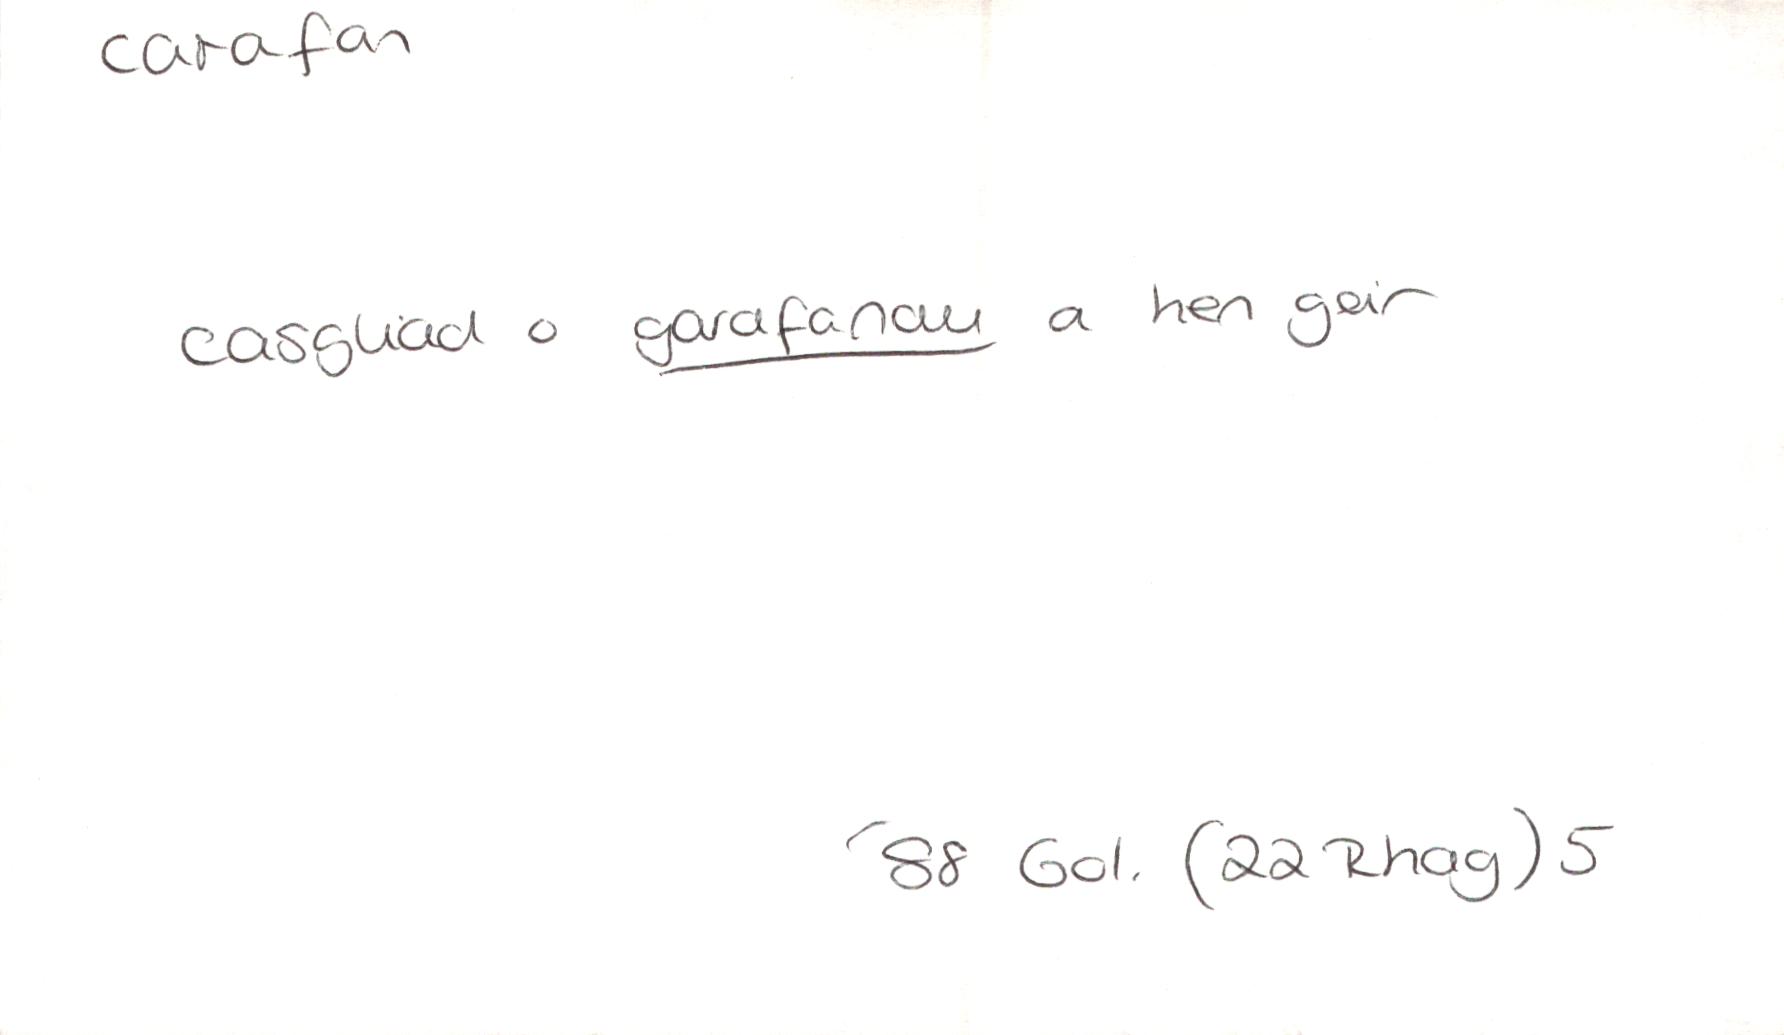 carafan
casgliad o garafanau a hen geir
'88 Gol. (22 Rhag) 5